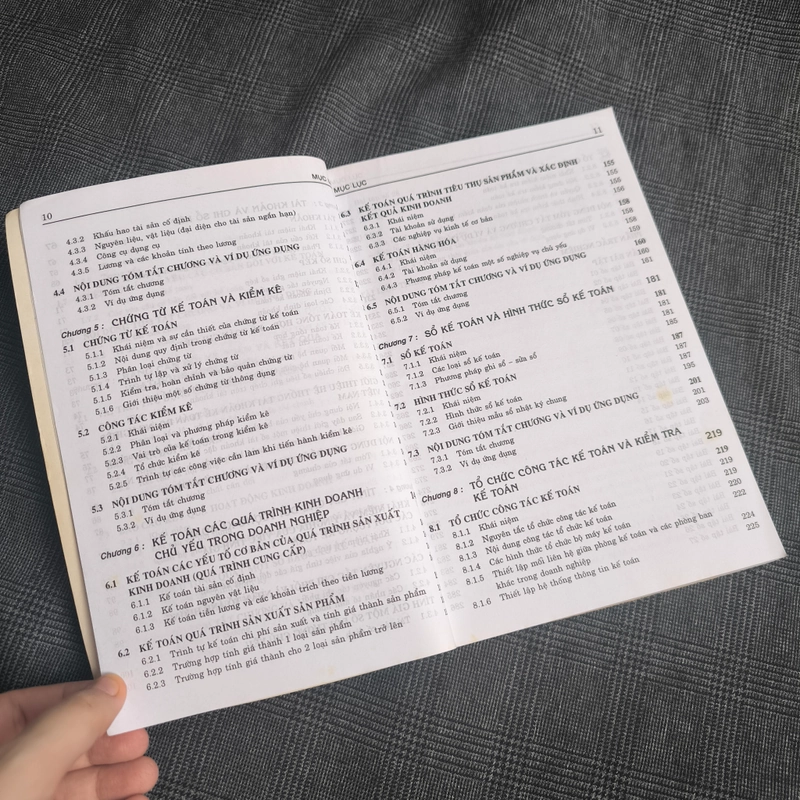 10
MỤC
4.3.2 Khấu hao tài sản cố định
4.3.3 Nguyên liệu, vật liệu (đại diện cho tài sản ngắn hạn)
4.3.4 Công cụ dụng cụ
4.3.5 Lương và các khoản tính theo lương
4.4 NỘI DUNG TÓM TẮT CHƯƠNG VÀ VÍ DỤ ỨNG DỤNG
4.3.1 Tóm tắt chương
4.3.2 Ví dụ ứng dụng
Chương 5 : CHỨNG TỪ KẾ TOÁN VÀ KIỂM KÊ
5.1 CHỨNG TỪ KẾ TOÁN
5.1.1 Khái niệm và sự cần thiết của chứng từ kế toán
5.1.2 Nội dung quy định trong chứng từ kế toán
5.1.3 Phân loại chứng từ
5.1.4 Trình tự lập và xử lý chứng từ
5.1.5 Kiểm tra, hoàn chỉnh và bảo quản chứng từ
5.1.6 Giới thiệu một số chứng từ thông dụng
5.2 CÔNG TÁC KIỂM KÊ
5.2.1 Khái niệm
5.2.2 Phân loại và phương pháp kiểm kê
5.2.3 Vai trò của kế toán trong kiểm kê
5.2.4 Tổ chức kiểm kê
5.2.5 Trình tự các công việc cần làm khi tiến hành kiểm kê
5.3 NỘI DUNG TÓM TẮT CHƯƠNG VÀ VÍ DỤ ỨNG DỤNG
5.3.1 Tóm tắt chương
5.3.2 Ví dụ ứng dụng
Chương 6 : KẾ TOÁN CÁC QUÁ TRÌNH KINH DOANH
CHỦ YẾU TRONG DOANH NGHIỆP
6.1 KẾ TOÁN CÁC YẾU TỐ CƠ BẢN CỦA QUÁ TRÌNH SẢN XUẤT
KINH DOANH (QUÁ TRÌNH CUNG CẤP)
6.1.1 Kế toán tài sản cố định
6.1.2 Kế toán nguyên vật liệu
6.1.3 Kế toán tiền lương và các khoản trích theo tiền lương
6.2 KẾ TOÁN QUÁ TRÌNH SẢN XUẤT SẢN PHẨM
6.2.1 Trình tự kế toán chi phí sản xuất và tính giá thành sản phẩm
6.2.2 Trường hợp tính giá thành 1 loại sản phẩm
6.2.3 Trường hợp tính giá thành cho 2 loại sản phẩm trở lên
MỤC LỤC 11
6.3 KẾ TOÁN QUÁ TRÌNH TIÊU THỤ SẢN PHẨM VÀ XÁC ĐỊNH
KẾT QUẢ KINH DOANH 155
6.3.1 Khái niệm 155
6.3.2 Tài khoản sử dụng 155
6.3.3 Các nghiệp vụ kinh tế cơ bản 156
6.4 KẾ TOÁN HÀNG HÓA 158
6.4.1 Khái niệm 158
6.4.2 Tài khoản sử dụng 158
6.4.3 Phương pháp kế toán một số nghiệp vụ chủ yếu 159
6.5 NỘI DUNG TÓM TẮT CHƯƠNG VÀ VÍ DỤ ỨNG DỤNG 160
6.5.1 Tóm tắt chương 160
6.5.2 Ví dụ ứng dụng 161
Chương 7 : SỔ KẾ TOÁN VÀ HÌNH THỨC SỔ KẾ TOÁN 181
7.1 SỔ KẾ TOÁN 181
7.1.1 Khái niệm 181
7.1.2 Các loại sổ kế toán 181
7.1.3 Phương pháp ghi sổ – sửa sổ 185
7.2 HÌNH THỨC SỔ KẾ TOÁN 187
7.2.1 Khái niệm 187
7.2.2 Hình thức sổ kế toán 187
7.2.3 Giới thiệu mẫu sổ nhật ký chung 195
7.3 NỘI DUNG TÓM TẮT CHƯƠNG VÀ VÍ DỤ ỨNG DỤNG 201
7.3.1 Tóm tắt chương 201
7.3.2 Ví dụ ứng dụng 203
Chương 8 : TỔ CHỨC CÔNG TÁC KẾ TOÁN VÀ KIỂM TRA
KẾ TOÁN 219
8.1 TỔ CHỨC CÔNG TÁC KẾ TOÁN 219
8.1.1 Khái niệm 219
8.1.2 Nguyên tắc tổ chức công tác kế toán 219
8.1.3 Nội dung công tác tổ chức kế toán 220
8.1.4 Các hình thức tổ chức bộ máy kế toán 222
8.1.5 Thiết lập mối liên hệ giữa phòng kế toán và các phòng ban
khác trong doanh nghiệp 224
8.1.6 Thiết lập hệ thống thông tin kế toán 225